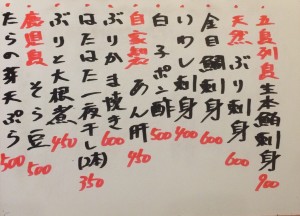 五島列島生本鮪刺身 900
天然ぶり刺身 600
金目鯛刺身 600
いわし刺身 400
白子ポン酢 500
自家製あん肝 450
ぶりかま焼き 600
はたはた一夜干し(2本) 350
ぶりと大根煮 450
鹿児島そら豆 500
たらの芽天ぷら 500